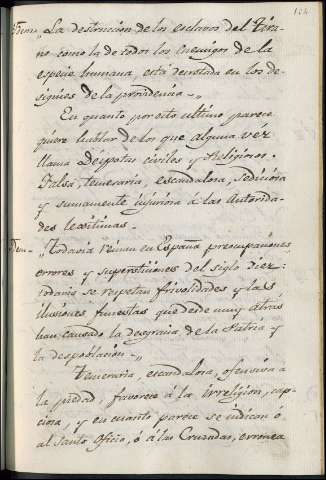 Item „ La destruccion de los esclavos del tira-
no como la de todos los enemigos de la
especie humana, está decretada en los de-
signios de la providencia. „
En quanto por esto ultimo parece
quiere hablar de los que alguna vez
llama Despotas civiles y Religiosos.
Falsa, temeraria, escandalosa, sediciosa
y sumamente injuriosa á las Autorida-
des legitimas.
Item „ Todavia reinan en España preocupaciones
errores y supersticiones del siglo diez:
todavia se respetan frivolidades y las
ilusiones funestas que desde muy atras
han causado la desgracia de la Patria y
la despoblacion. „
Temeraria, escandalosa, ofensiva á
la piedad, favorece á la irreligion, cap-
ciosa, y en cuanto parece se indican ó
al Santo Oficio, ó á las Cruzadas, erronea